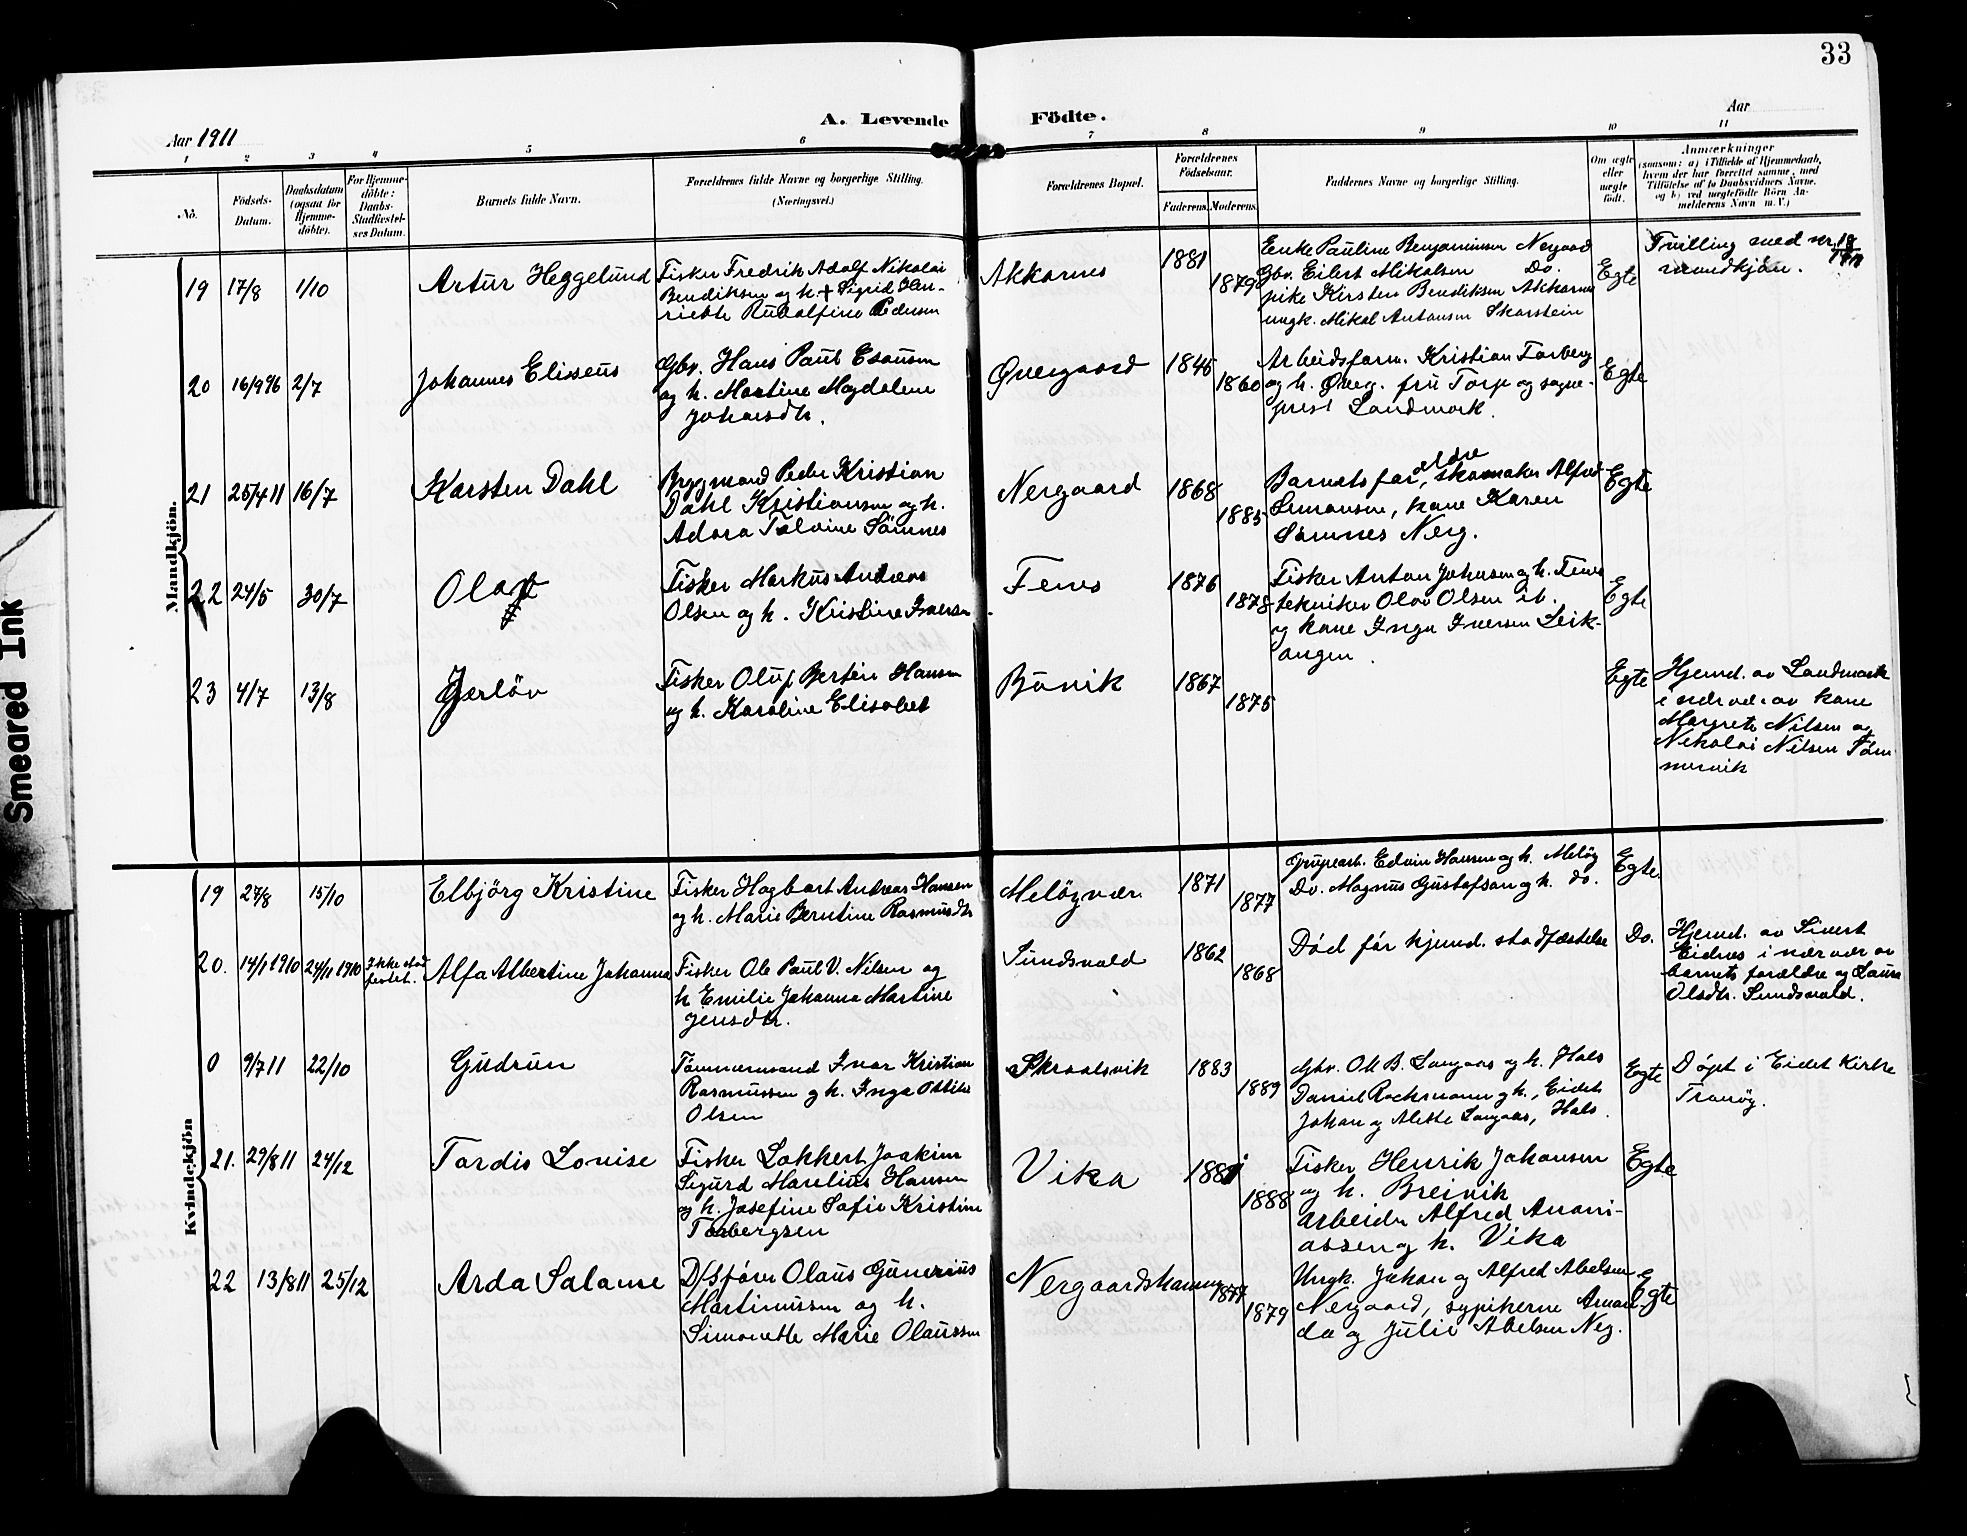 33
A. Levende Födte.
Aar 1911
Aar
1 2 3 4 5 6 7 8 9 10 11
No.
Födsels-
Datum.
Daabsdatum
(ogsaa for
Hjemme-
döbte).
For Hjemme-
döbte:
Daabs-
Stadfæstel-
ses Datum.
Barnets fulde Navn.
Forældrenes fulde Navne og borgerlige Stilling.
(Næringsvei.)
Forældrenes Bopæl.
Forældrenes
Födselsaar.
Faderens. Moderens.
Faddernes Navne og borgerlige Stilling.
Om ægte
eller
uægte
födt.
Anmærkninger
(saasom: a) i Tilfælde af Hjemmedaab,
hvem der har forrettet samme, med
Tilföielse af to Daabsvidners Navne.
og b) ved uægtefödte Börn An-
melderens Navn m. V.)
Mandkjön.
19 17/8 1/10
Artur Heggelund
Fisker Fredrik Adolf Nikolai
Bendiksen og h. + Sigrid Hen-
riette Rudolfine Pedersen
Akkarnes
1881
1879
Enke Pauline Benjaminsen Nergaard
Gbr. Eilert Mikalsen Do.
pike Kirsten Bendiksen Akkarnes
ungk. Mikal Antonsen Skarstein
Egte
Tvilling med nr. 18
mandkjön.
20 16/9 96 2/7
Johannes Eliseus
Gbr. Hans Paul Esausen
og h. Martine Magdalene
Johansdtr.
Øvergaard
1845
1860
Arbeidsform. Kristian Torberg
og h. Øverg. fru Torp og sogne-
prest Landmark.
Egte
21 25/4 11 16/7
Karsten Dahl
Brygmand Peder Kristian
Dahl Kristiansen og h.
Adora Tolvine Sömnes
Nergaard
1868
1885
Barnets forældre, skomaker Alfred
Simonsen, kone Karen
Sömnes Nerg.
Egte
22 24/5 30/7
Olaf
Fisker Markus Andreas
Olsen og h. Kristine Iversen
Fenes
1876
1878
Fisker Anton Johnsen og h. Fenes
tekniker Olav Olsen ib.
og kone Inga Iversen Leik-
angen.
Egte
23 4/7 13/8
Gerlöv
Fisker Oluf Bertin Hansen
og h. Karoline Elisabet
Bövik
1867
1875
Egte
Hjemd. av Landmark
i nærvær av kone
Margrete Nilsen og
Nikolai Nilsen Töm-
mervik
Kvindekjön
19 27/8 15/10
Elbjörg Kristine
Fisker Hagbart Andreas Hansen
og h. Marie Berntine Rasmusdtr
Melöyvær
1871
1877
Grubearb. Edvin Hansen og h. Melöy
Do. Magnus Gustafson og h. do.
Egte
20. 14/1 1910 24/11 1910
Ikke stad
festet.
Alfa Albertine Johanna
Fisker Ole Paul V. Nilsen og
h Emilie Johanna Martine
Jensdtr.
Sundsvald
1862
1868
Död för hjemd. stadfæstelse
Do.
Hjemd. av Sivert
Eidnes i nærvær av
barnets forældre og Laura
Olsdtr. Sundsvald.
0 9/7 11 22/10
Gudrun
Tömmermand Ivar Kristian
Rasmussen og h. Inga Ottilie
Olsen
Skrolsvik
1883
1889
Gbr. Ole B. Langaas og h. Hals
Daniel Rochmann og h., Eidet
Johan og Alette Langaas, Hals.
Egte
Döpt i Eidet Kirke
Tranöy.
21. 29/8 11 24/12
Tordis Lovise
Fisker Lokkert Joakim
Sigurd Marelius Hansen
og h. Josefine Sofie Kristine
Torbergsen
Vika
1881
1888
Fisker Henrik Johansen
og h. Breivik
arbeider Alfred Anani-
assen og h. Vika
Egte
22 13/8 11 25/12
Arda Salome
D/Sförer Olaus Gunerius
Martinussen og h.
Simonette Marie Olaussen
Nergaardshamn
1877
1879
Ungk. Johan og Alfred Abelsen
Nergaard, sypikerne Aman-
da og Julie Abelsen Nerg.
Egte
Smeared Ink